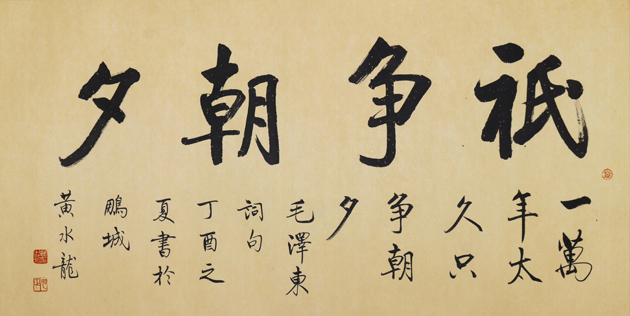 祇争朝夕
一萬
年太
久只
争朝
夕
毛澤東
詞句
丁酉之
夏書於
鵬城
黄水龍